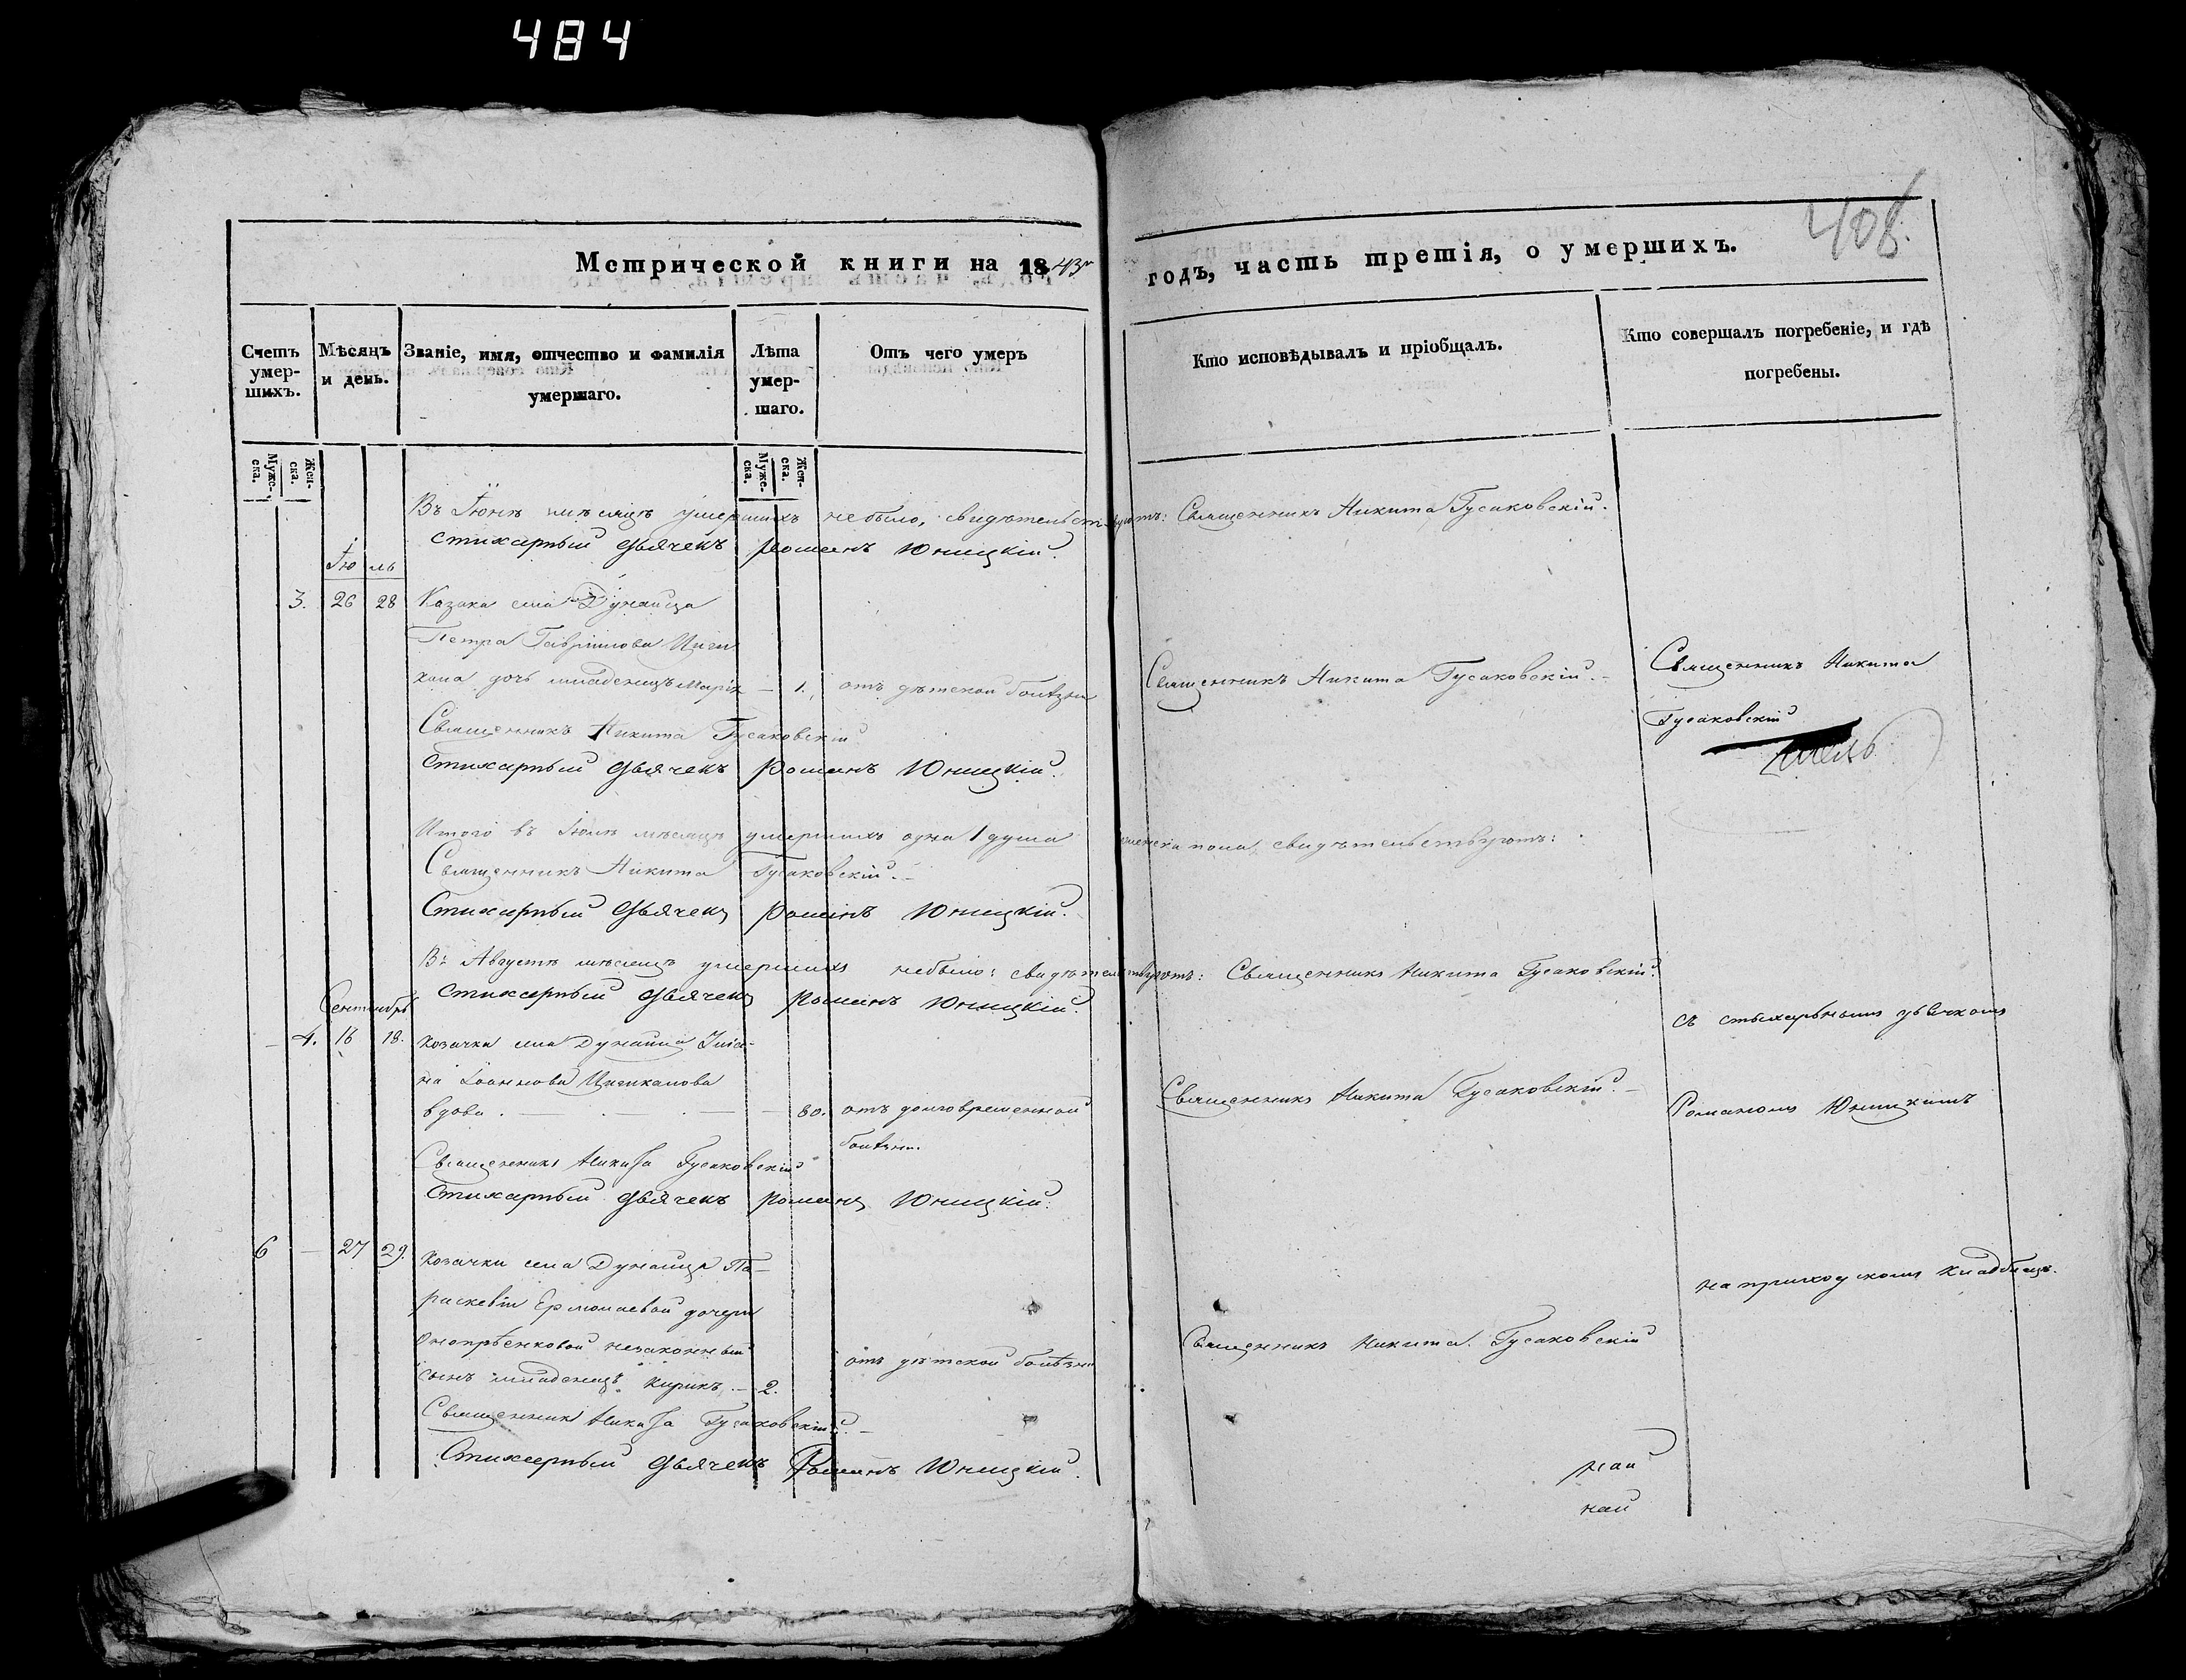 484
408.
Метрической книги на 1843й годъ, часть третія, о умершихъ.
Счетъ умер-шихъ.
Мѣсяцъ и день.
Званіе, имя, отчество и фамилія умершаго.
Лѣта умер-шаго.
Отъ чего умеръ
Кто исповѣдывалъ и пріобщалъ.
Кто совершалъ погребеніе, и гдѣ погребены.
Мужс-ска. Жен-ска.
Мужс-ска. Жен-ска.
Въ Іюнѣ мѣсяцѣ умершихъ небыло, свидѣтельствуютъ: Священникъ Никита Гусаковскій.
Стихарный Дьячекъ Романъ Юницкій.
Іюль
3. 26 28 Казака села Дунайца
Петра Гаврилова
дочь младенецъ Марія — 1. отъ дѣтской болѣзни Священникъ Никита Гусаковскій. Священникъ Никита
Гусаковскій
Священникъ Никита Гусаковскій
Стихарный Дьячекъ Романъ Юницкій.
Итого въ Іюлѣ мѣсяцѣ умершихъ одна 1 душа женска пола, свидѣтельствуютъ:
Священникъ Никита Гусаковскій.
Стихарный Дьячекъ Романъ Юницкій.
Въ Августѣ мѣсяцѣ умершихъ небыло: свидѣтельствуютъ: Священникъ Никита Гусаковскій.
Стихарный Дьячекъ Романъ Юницкій.
Сентябрь
съ стыхарнымъ дьячкомъ
— 4. 16 18. Козачка села Дунайца
Іоаннова Цигиканова
вдова. — 80. отъ долговременной Священникъ Никита Гусаковскій. Романомъ Юницкимъ
болѣзни.
Священникъ Никита Гусаковскій
Стихарный Дьячекъ Романъ Юницкій.
6 — 27 29. Козачки села Дунайца Па-
раскевіи Ермолаевой дочери на приходскомъ кладбищѣ.
Онопрѣенковой незаконный отъ дѣтской болѣзни Священникъ Никита Гусаковскій
сынъ младенецъ Кирикъ. — 2.
Священникъ Никита Гусаковскій.
Стихарный Дьячекъ Романъ Юницкій.